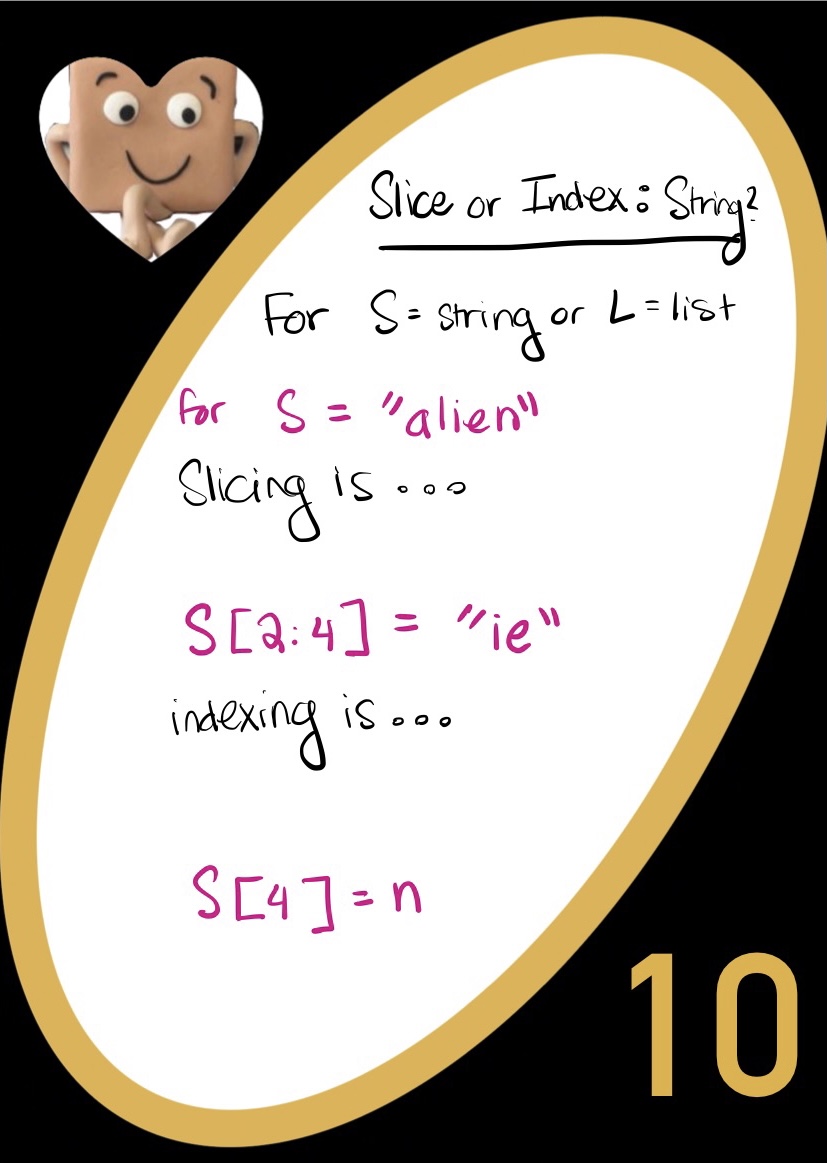 Slice or Index: String?
For S = string or L = list
for S = "alien"
Slicing is...
S[2:4] = "ie"
indexing is...
S[4] = n
10